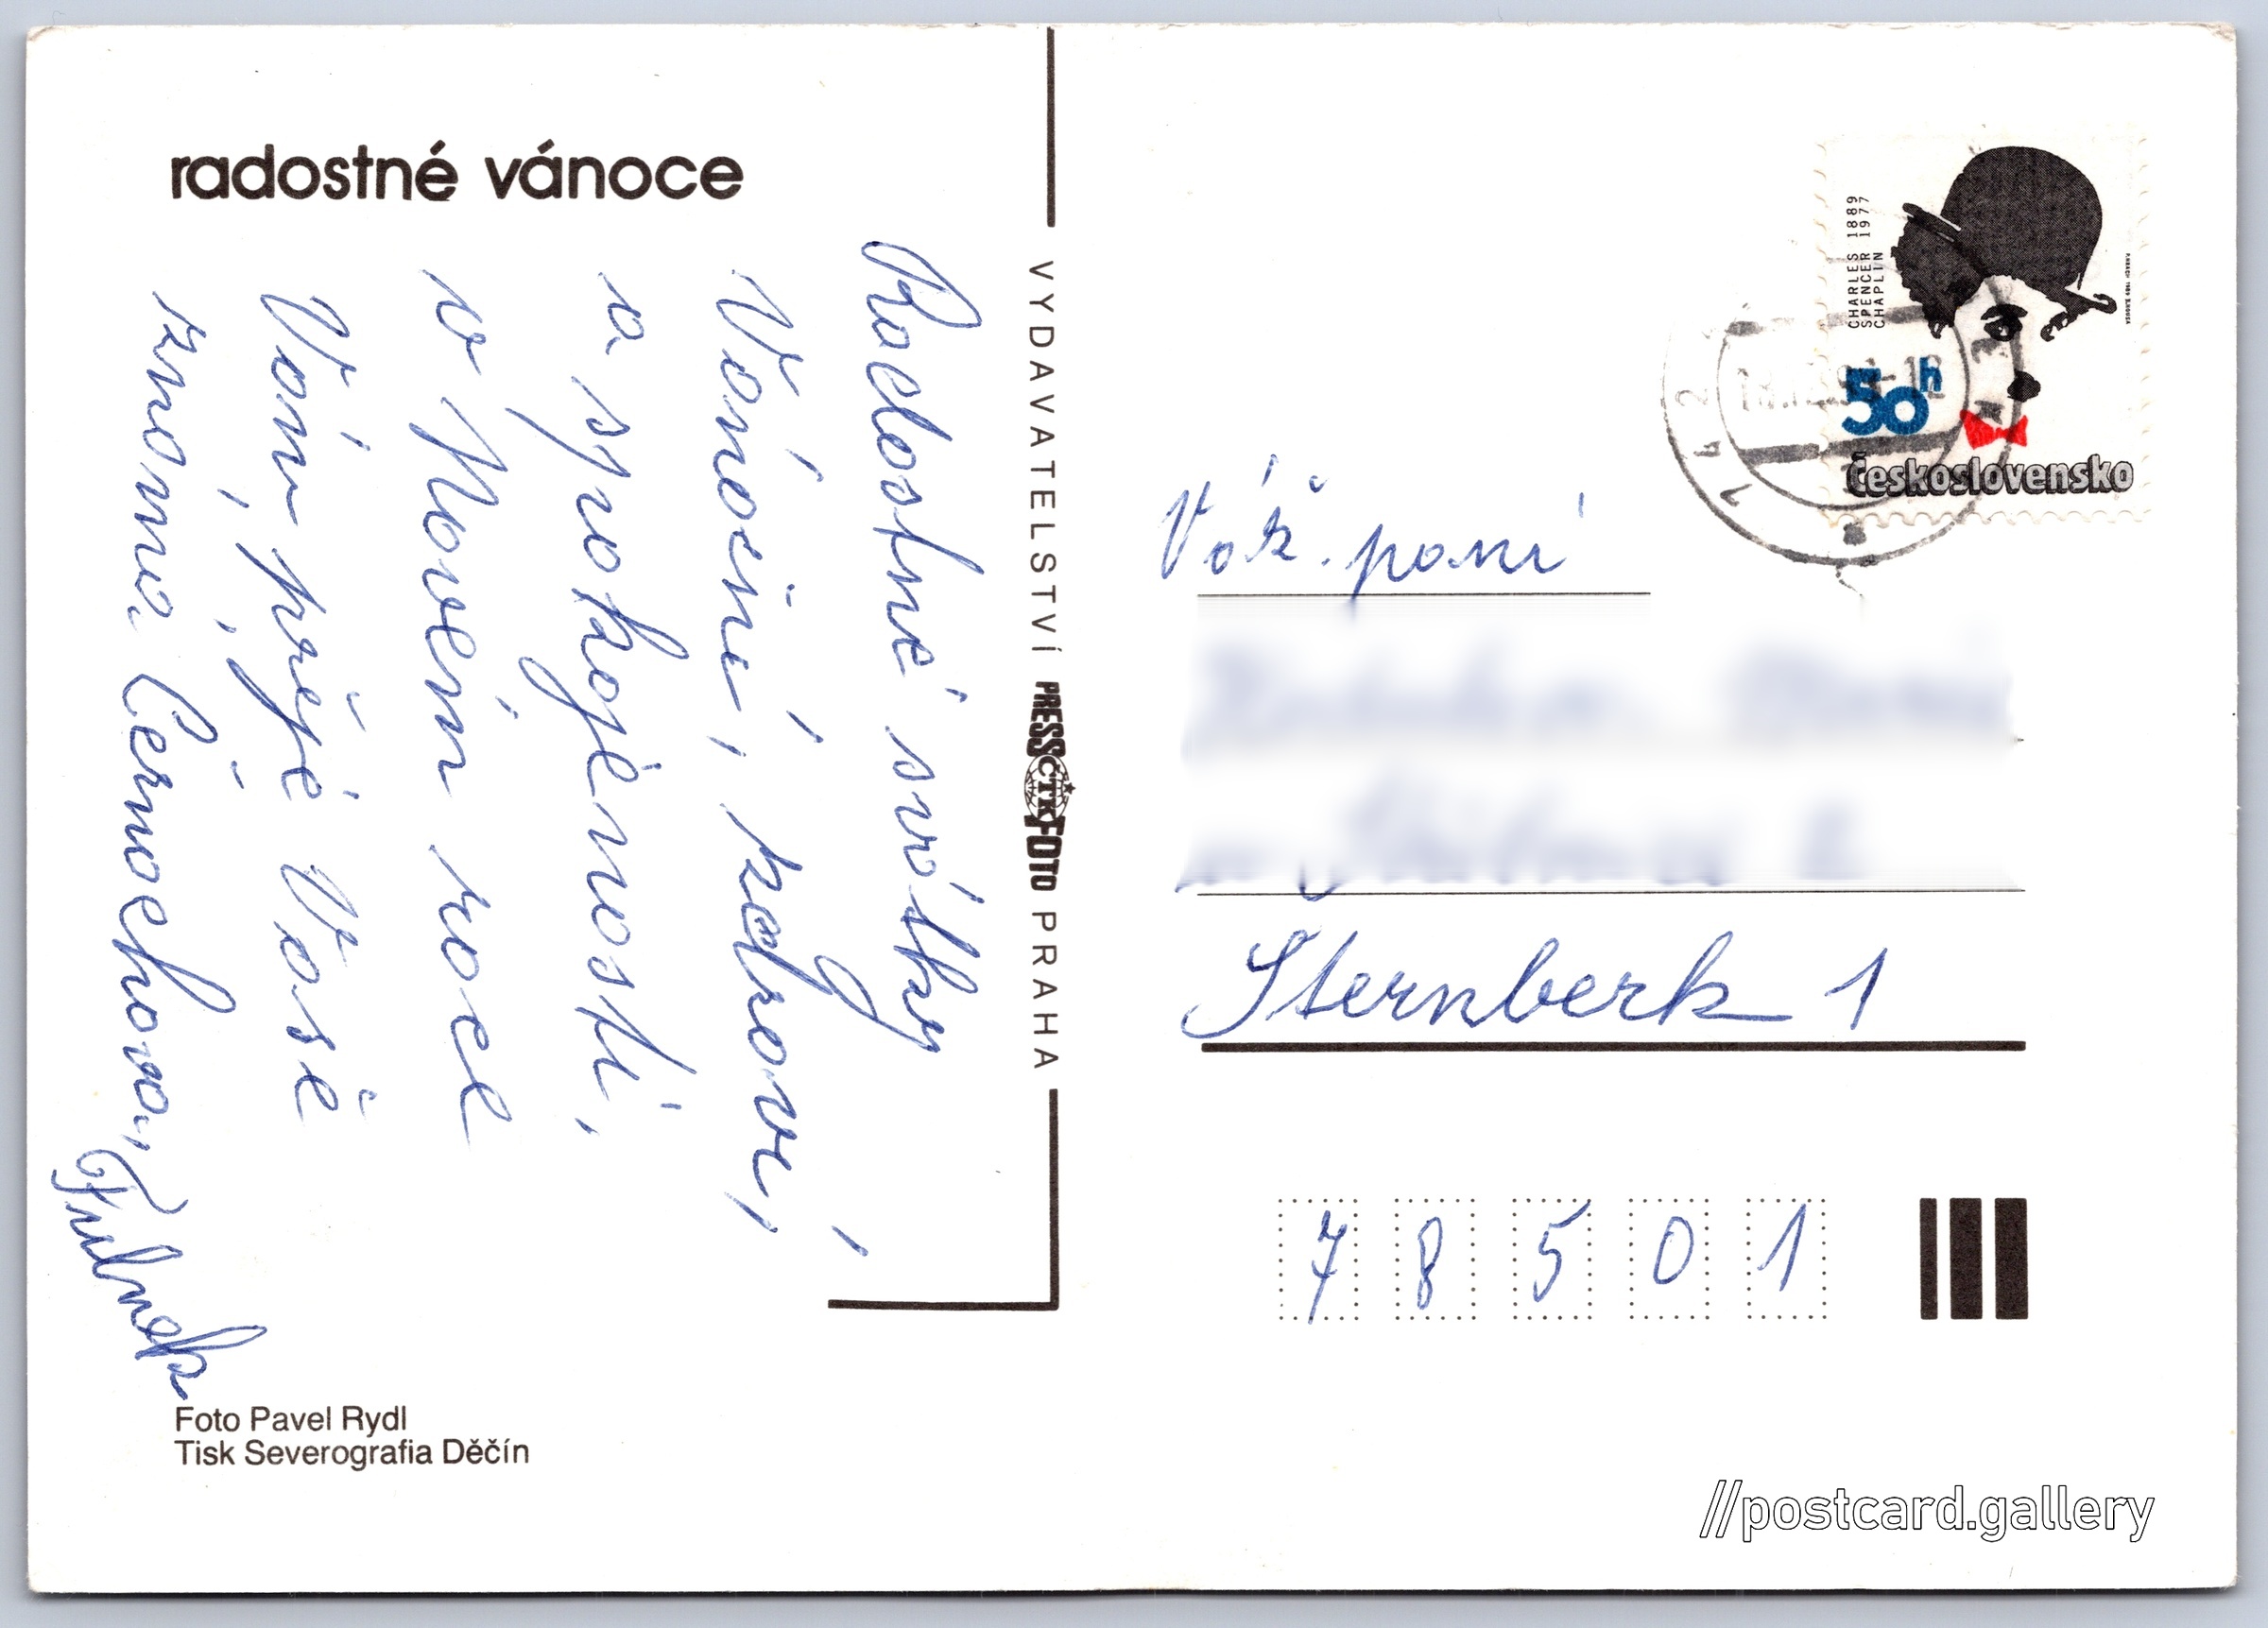 radostné vánoce
Radostné svátky
Vánoční, zdraví,
a spokojenosti,
v Novém roce
Vám přeje Vaše
známá Černochova,
VYDAVATELSTVÍ PRESSFOTO PRAHA
ČTK
Foto Pavel Rydl
Tisk Severografia Děčín
CHARLES 1889
SPENCER 1977
CHAPLIN
50h
Československo
Váž. paní
Šternberk 1
7 8 5 0 1
//postcard.gallery